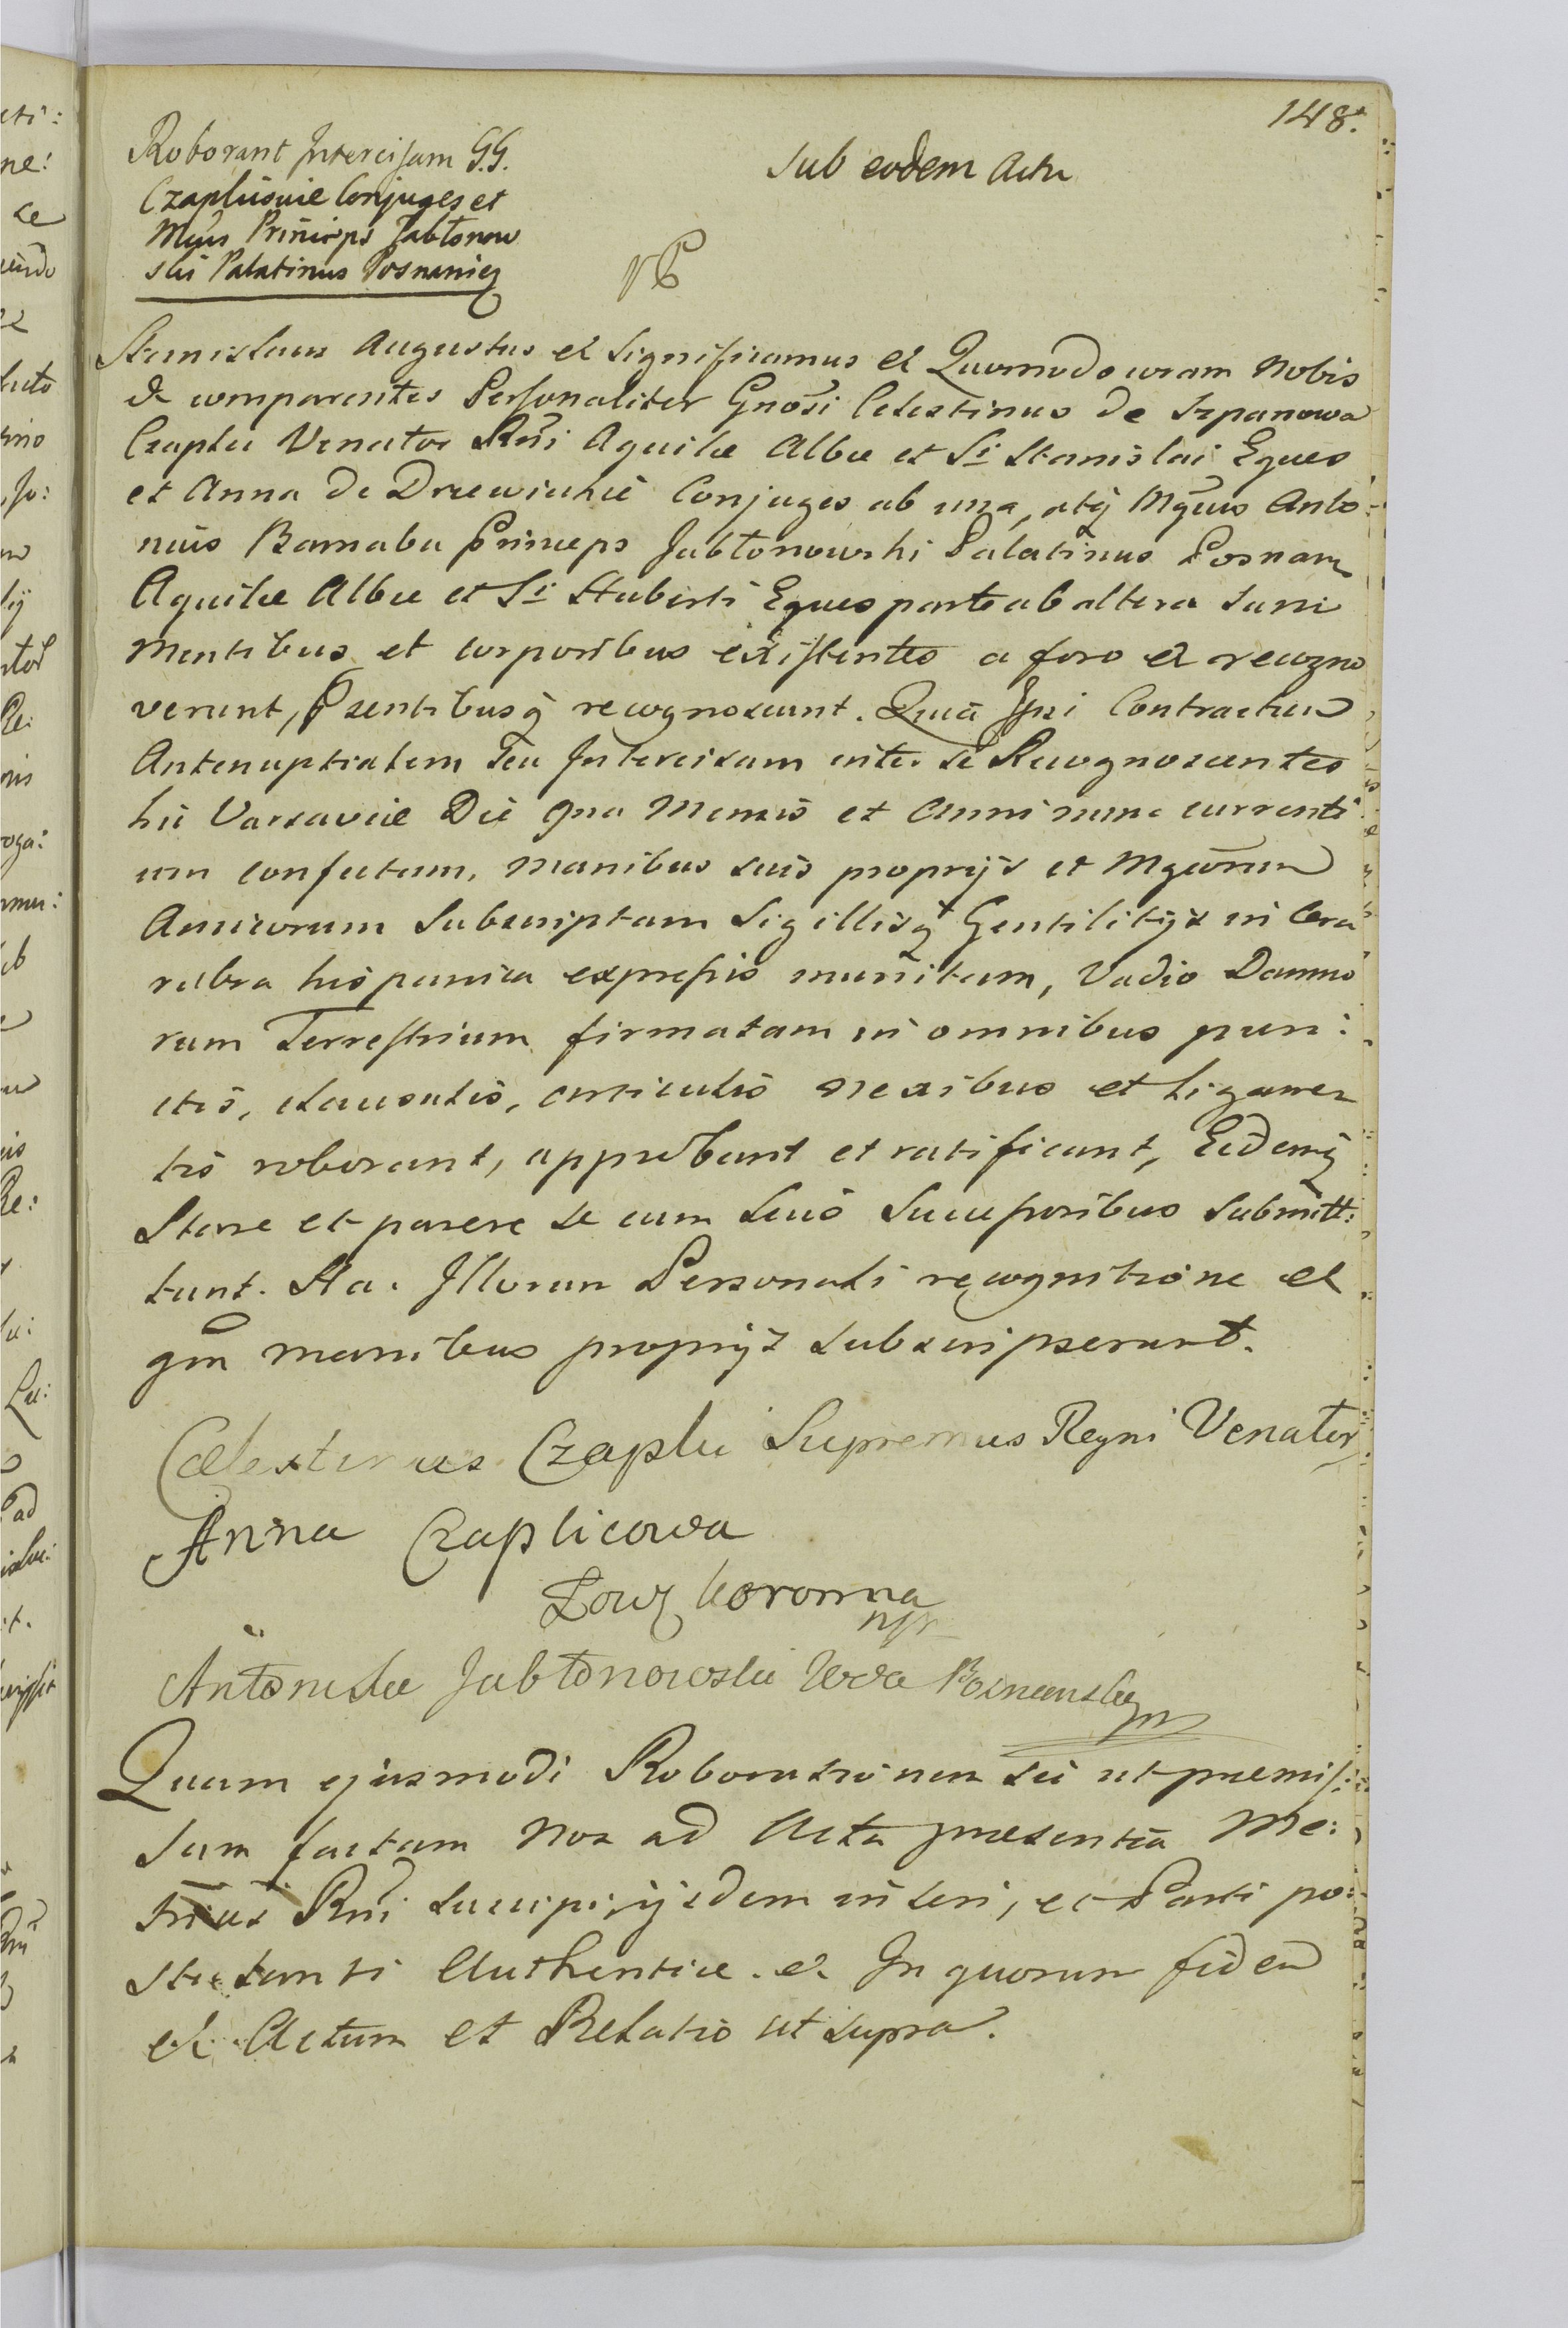 148.
Roborant Intercisam G.G.
Czapliciie Conjuges et
Mgnus Princeps Jabłonow
ski Palatinus Posnanien
Sub eodem Actu
Stanislaus Augustus et Significamus et Quomodo coram Nobis
et comparentes Personaliter Gnosi Celestinus de Szpanowa
Czaplic Venator Rni Aquilæ Albæ et Sti Stanislai Eques
et Anna de Drzewickie Conjuges ab una, atq Mgnus Anto
nius Barnaba Princeps Jabłonowski Palatinus Posnan
Aquilæ Albæ et Sti Huberti Eques parte ab altera Sani
Mentibus et corporibus existentes a foro et recogno
verunt, Psentibusq recognoscunt. Quia Ipsi Contractum
Antenuptialem seu Intercisam inter se Recognoscentes
hic Varsaviæ Die qna Mensis et Anni nunc currenti
um confectam, manibus suis proprijs et Mgcorum
Amicorum Subscriptam Sigillisq Gentilitijs in Cera
rubra hispanica expressis munitam, Vadio Damno
rum Terrestrium firmatam in omnibus pun:
ctis, clausulis, articulis nexibus et ligamen
tis roborant, approbant et ratificant, Eidemq
Stare et parere se cum Suis Successoribus Submitt:
tunt. Ha. Illorum Personali recognitione et
qm manibus proprijs subscripserunt.
Cælestinus Czaplic Supremus Regni Venator
Anna Czaplicowa
Łow Koronna
mpr
Antoni Xze Jabłonowski Wda Poznanski mp
Quam ejusmodi Roborationem sic ut præmis:
sum factam Nos ad Acta præsentia Me:
tricas Rni suscipi, ijsdem inseri, et Parti po:
stulanti Authentice. et In quorum fidem
et Actum et Relatio ut supra.